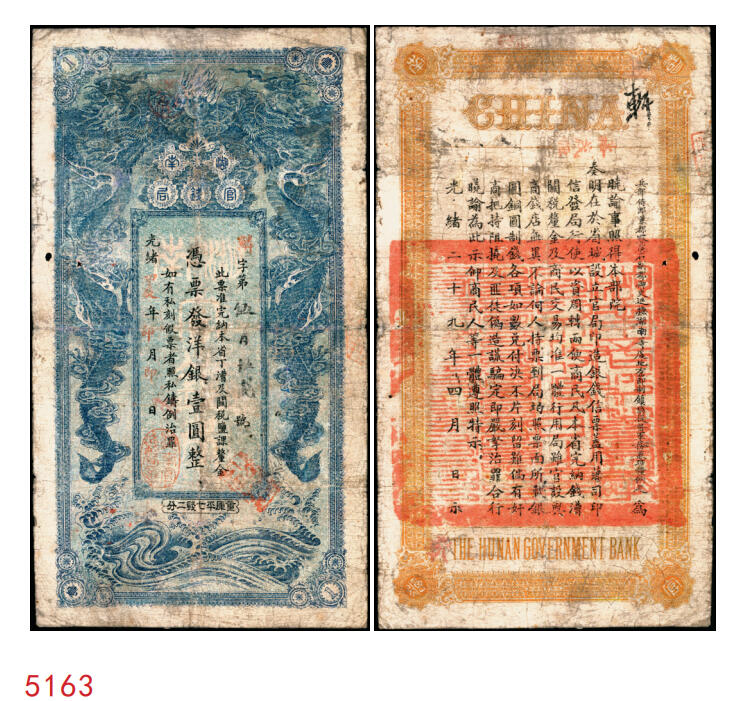 湖南
官錢局
字第伍 號
此票准完納本省丁漕及關稅鹽課釐金
憑票發洋銀壹圓整
如有私刻假票者照私鑄例治罪
光緒 年 月 日
重庫平七錢二分
CHINA
為
曉諭事照得本部院
奏明在於省城設立官局印造銀錢信票蓋用藩司印
信發局行使以資周轉而便商民凡本省完納錢漕
關稅釐金及商民交易均准一體行用局雖官設與
商錢店無異不論何人持票到局均照票面所載銀
圓銅圓制錢各項如數兌付決不片刻留難倘有奸
商把持阻撓及匪徒偽造誆騙定即嚴拏治罪合行
曉諭為此示仰商民人等一體遵照特示
光緒二十九年四月 日示
THE HUNAN GOVERNMENT BANK
5163